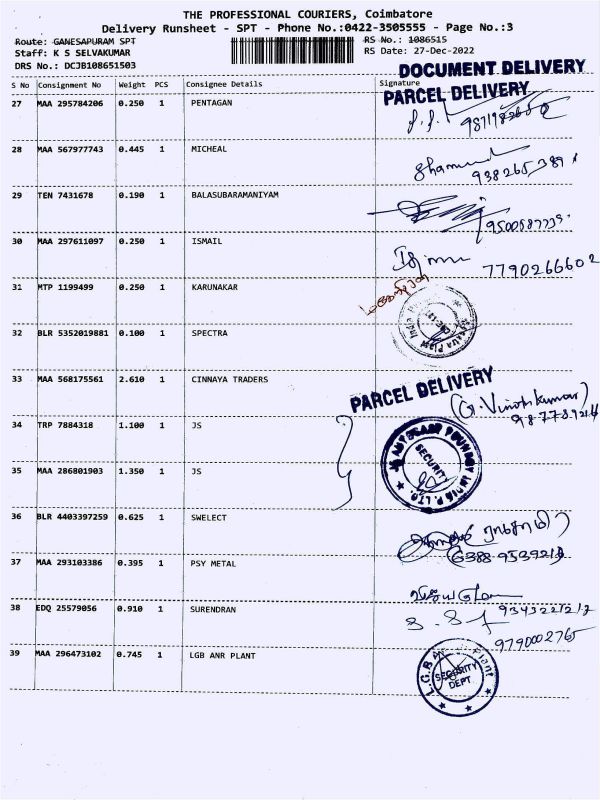 THE PROFESSIONAL COURIERS, Coimbatore
Delivery Runsheet - SPT - Phone No.:0422-3505555 - Page No.:3
Route: GANESAPURAM SPT
RS No.: 1086515
Staff: K S SELVAKUMAR
RS Date: 27-Dec-2022
DRS No.: DCJB108651503
DOCUMENT DELIVERY
S No Consignment No Weight PCS Consignee Details Signature
PARCEL DELIVERY
27 MAA 295784206 0.250 1 PENTAGAN
28 MAA 567977743 0.445 1 MICHEAL
29 TEN 7431678 0.190 1 BALASUBARAMANIYAM
30 MAA 297611097 0.250 1 ISMAIL
7790266602
31 MTP 1199499 0.250 1 KARUNAKAR
32 BLR 5352019881 0.100 1 SPECTRA
33 MAA 568175561 2.610 1 CINNAYA TRADERS
PARCEL DELIVERY
(G. Vinothkumar)
34 TRP 7884318 1.100 1 JS
AUTOCAST FOUNDRY INDIA P. LTD.
SECURITY
35 MAA 286801903 1.350 1 JS
36 BLR 4403397259 0.625 1 SWELECT
37 MAA 293103386 0.395 1 PSY METAL
38 EDQ 25579056 0.910 1 SURENDRAN
9790002765
39 MAA 296473102 0.745 1 LGB ANR PLANT
L.G.B
Plant
SECURITY
DEPT.